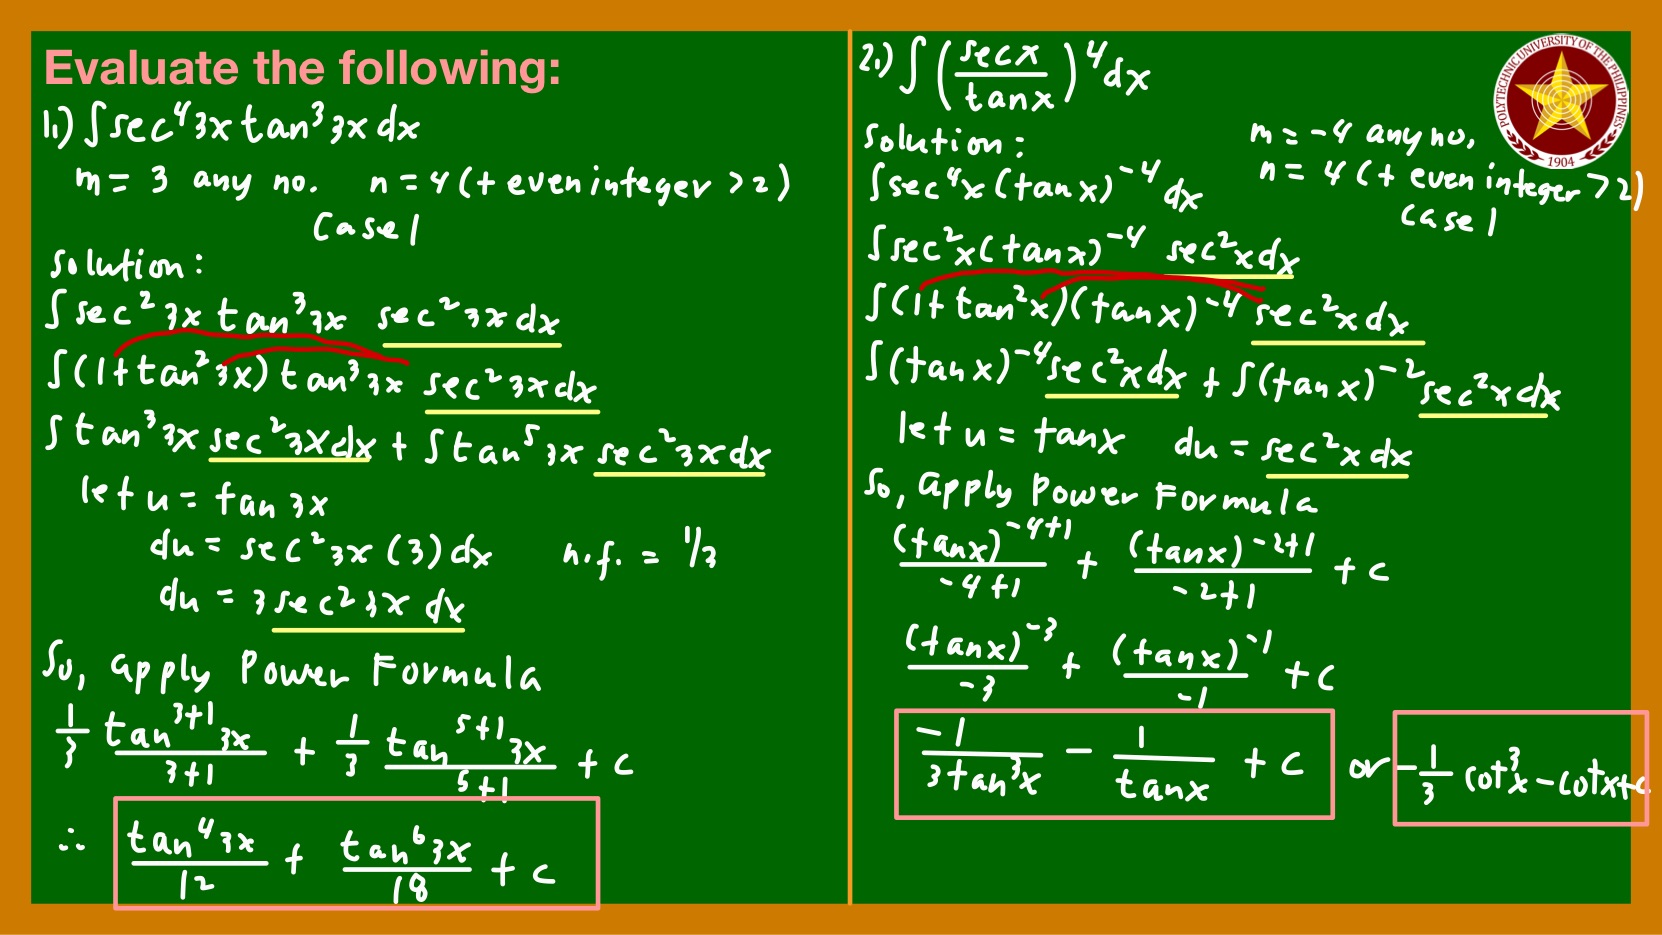 Evaluate the following:
1.) ∫sec⁴3x tan³3x dx
m = 3 any no. n = 4 (+ even integer > 2)
Case 1
Solution:
∫sec²3x tan³3x sec²3x dx
∫(1+tan²3x) tan³3x sec²3x dx
∫tan³3x sec²3x dx + ∫tan⁵3x sec²3x dx
let u = tan 3x
du = sec²3x (3) dx n.f. = 1/3
du = 3 sec²3x dx
So, apply Power Formula
1/3 tan³⁺¹3x/3+1 + 1/3 tan⁵⁺¹3x/5+1 + c
∴ tan⁴3x/12 + tan⁶3x/18 + c
2.) ∫(secx/tanx)⁴dx
Solution:
m = -4 any no,
n = 4 (+ even integer > 2)
case 1
∫sec⁴x (tanx)⁻⁴ dx
∫sec²x (tanx)⁻⁴ sec²x dx
∫(1+tan²x)(tanx)⁻⁴ sec²x dx
∫(tanx)⁻⁴ sec²x dx + ∫(tanx)⁻² sec²x dx
let u = tanx du = sec²x dx
So, apply Power Formula
(tanx)⁻⁴⁺¹/-4+1 + (tanx)⁻²⁺¹/-2+1 + c
(tanx)⁻³/-3 + (tanx)⁻¹/-1 + c
-1/3tan³x - 1/tanx + c or -1/3 cot³x - cotx + c
POLYTECHNIC UNIVERSITY OF THE PHILIPPINES
1904